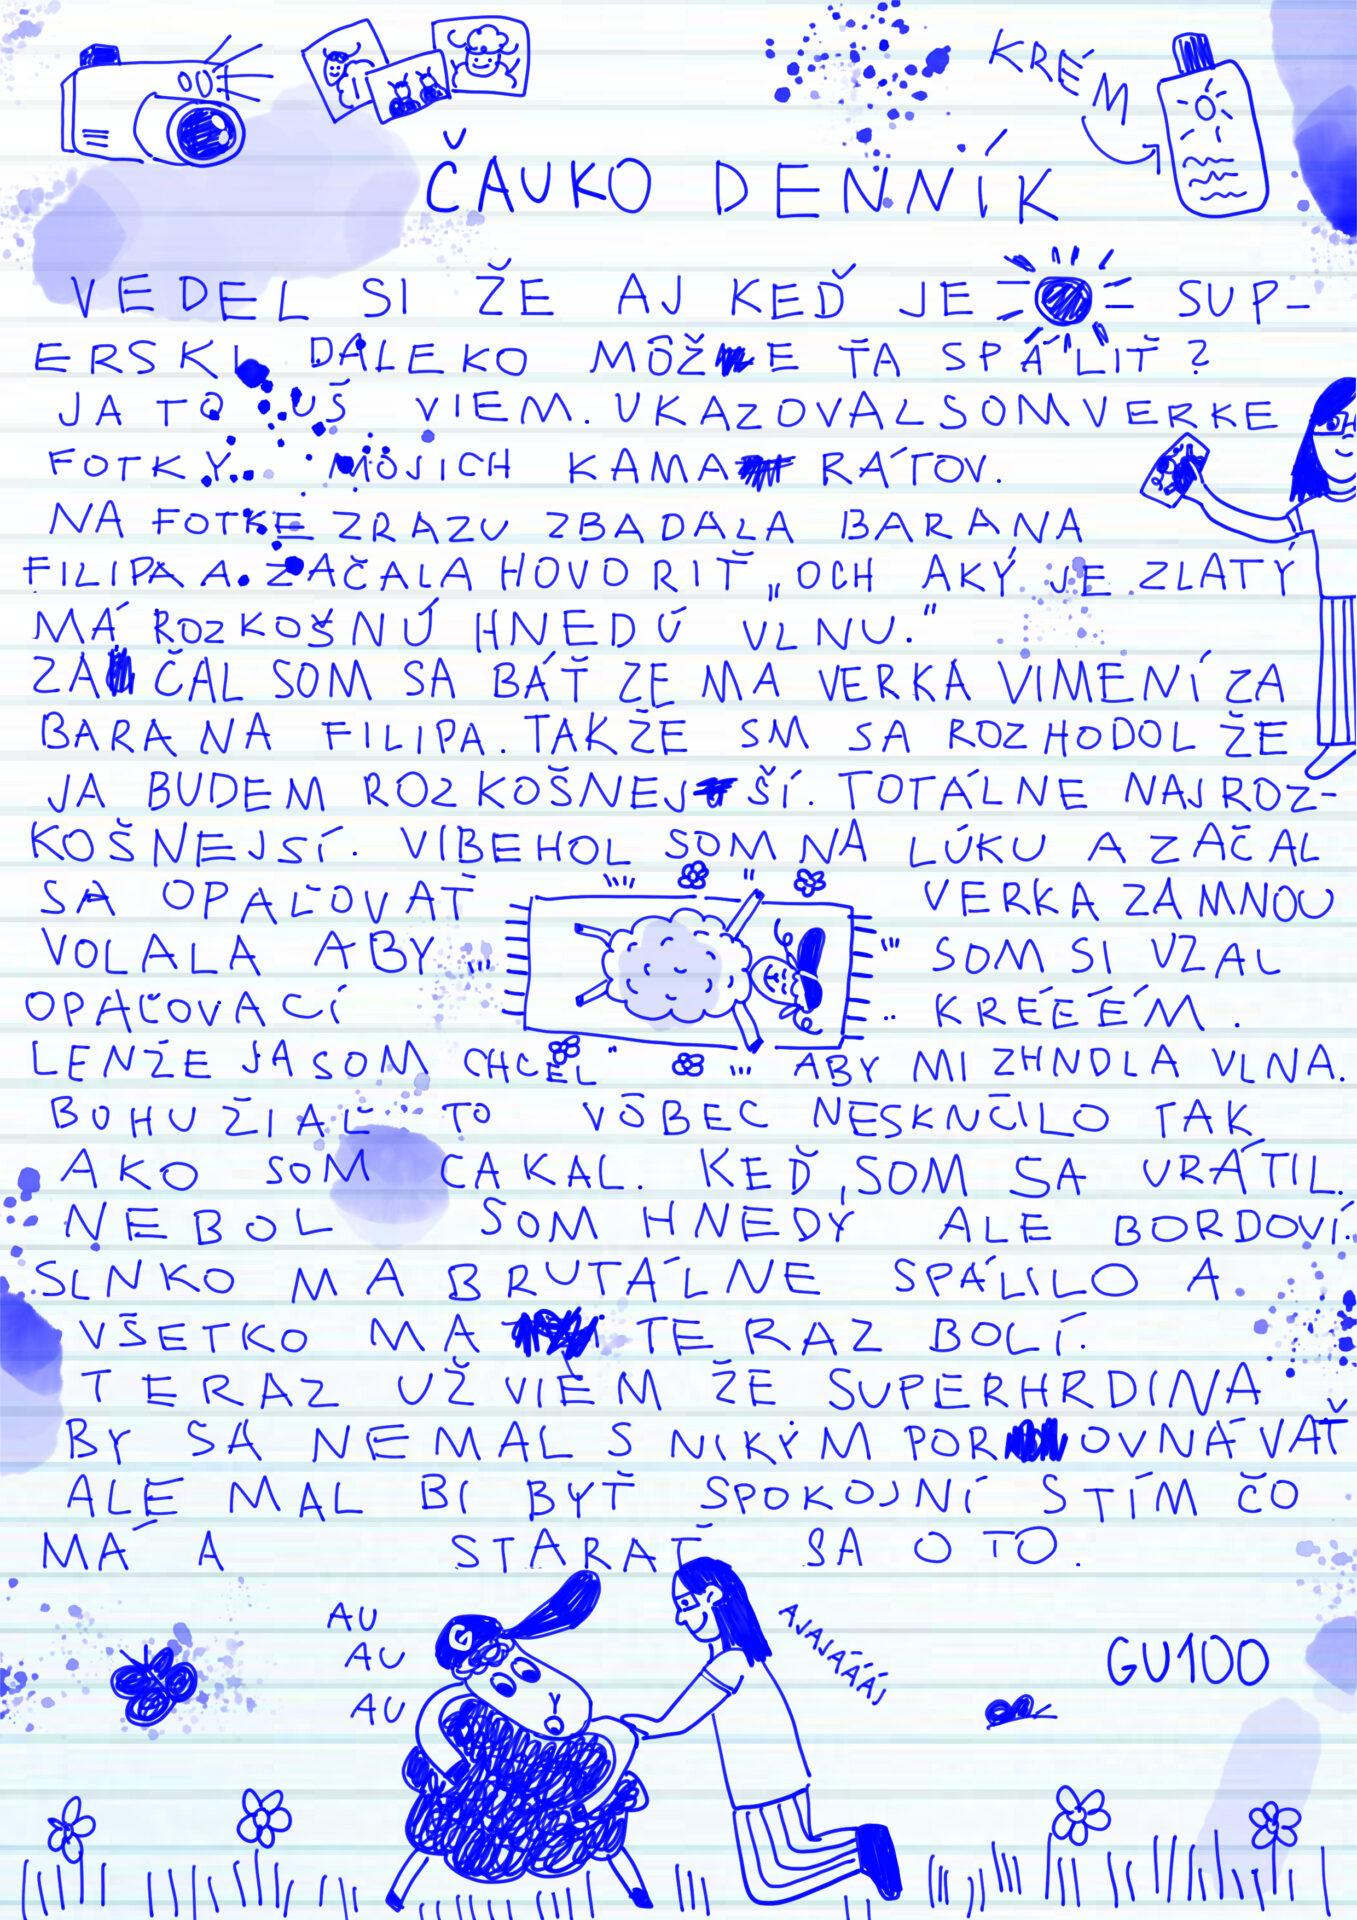 KRÉM
ČAUKO DENNÍK
VEDEL SI ŽE AJ KEĎ JE SUP-
ERSKI DALEKO MÔŽE ŤA SPÁLIŤ?
JA TO UŠ VIEM. UKAZOVAL SOM VERKE
FOTKY MOJICH KAMA RÁTOV.
NA FOTKE ZRAZU ZBADALA BARANA
FILIPA A ZAČALA HOVORIŤ „OCH AKÝ JE ZLATÝ
MÁ ROZKOŠNÚ HNEDÚ VLNU."
ZA ČAL SOM SA BÁŤ ZE MA VERKA VIMENÍ ZA
BARANA FILIPA. TAKŽE SM SA ROZHODOL ŽE
JA BUDEM ROZKOŠNEJ ŠÍ. TOTÁLNE NAJROZ-
KOŠNEJSÍ. VIBEHOL SOM NA LÚKU A ZAČAL
SA OPAĽOVAŤ VERKA ZAMNOU
VOLALA ABY SOM SI VZAL
OPAĽOVACÍ KRÉÉÉM.
LENŽE JA SOM CHCEL ABY MI ZHNDLA VLNA.
BOHUŽIAĽ TO VÔBEC NESKNČILO TAK
AKO SOM CAKAL. KEĎ SOM SA VRÁTIL.
NEBOL SOM HNEDÝ ALE BORDOVÍ.
SLNKO MA BRUTÁLNE SPÁLILO A
VŠETKO MA TERAZ BOLÍ.
TERAZ UŽ VIEM ŽE SUPERHRDINA
BY SA NEMAL S NIKÝM POR OVNÁVAŤ
ALE MAL BI BYŤ SPOKOJNÍ S TÍM ČO
MÁ A STARAŤ SA O TO.
AU
AU
AU
G
AJAJÁÁÁJ
GU100